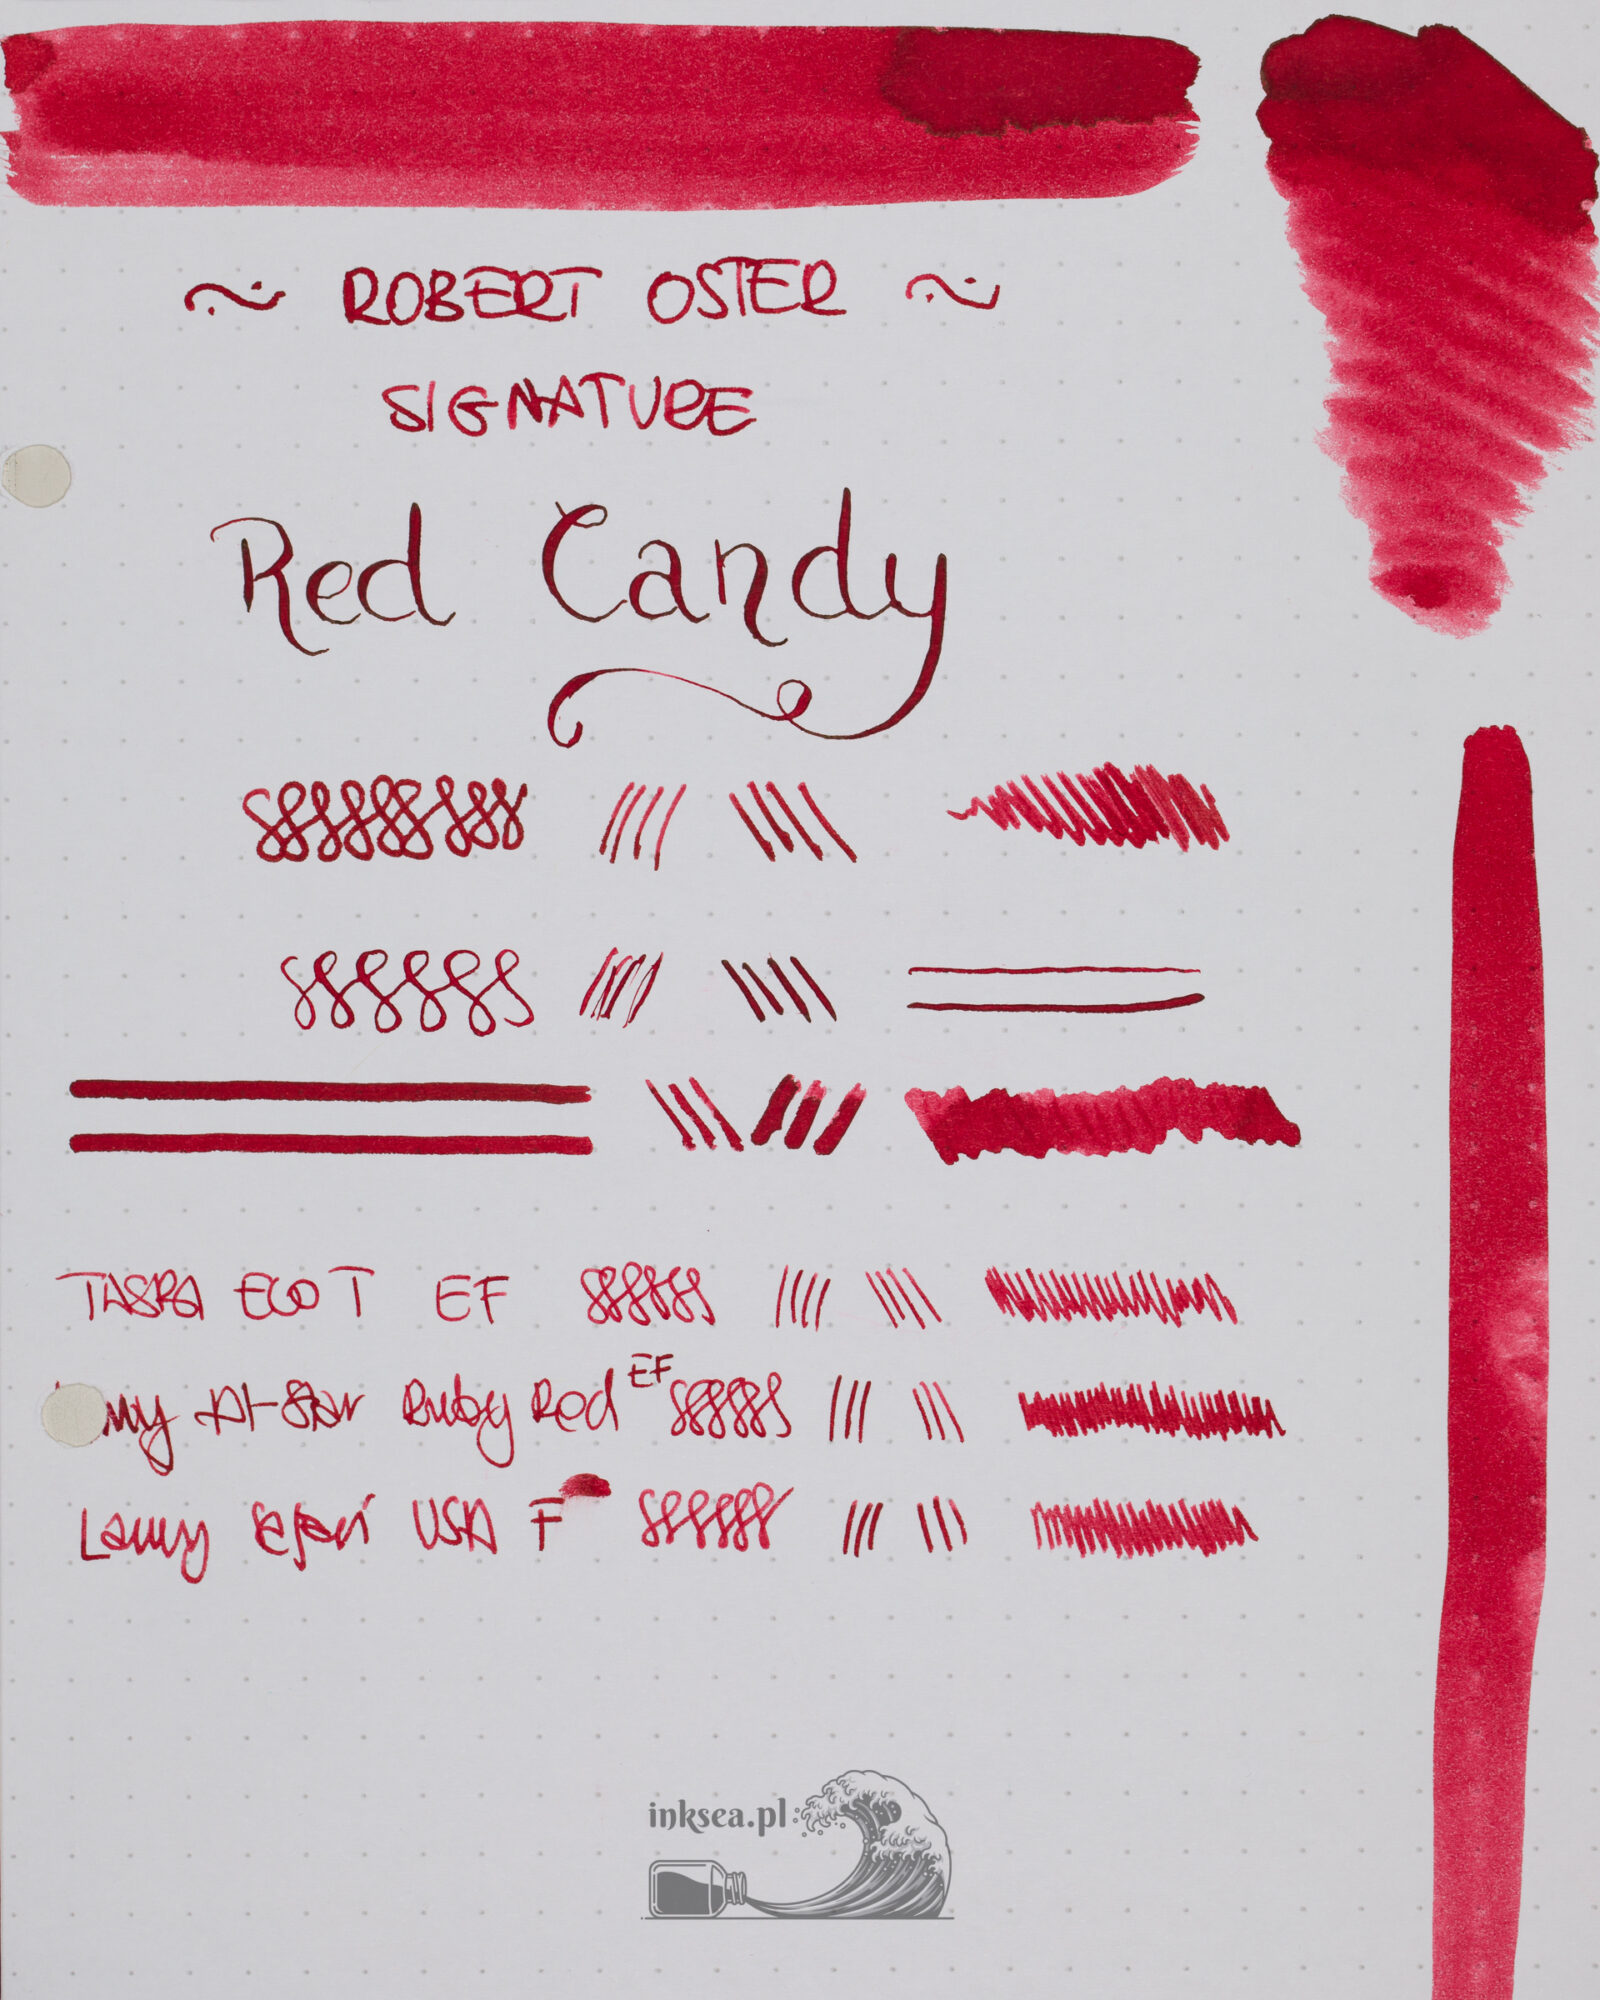 ~ ROBERT OSTER ~
SIGNATURE
Red Candy
ECO T EF
my Al-Star Ruby Red EF
Lamy Safari USA F
inksea.pl